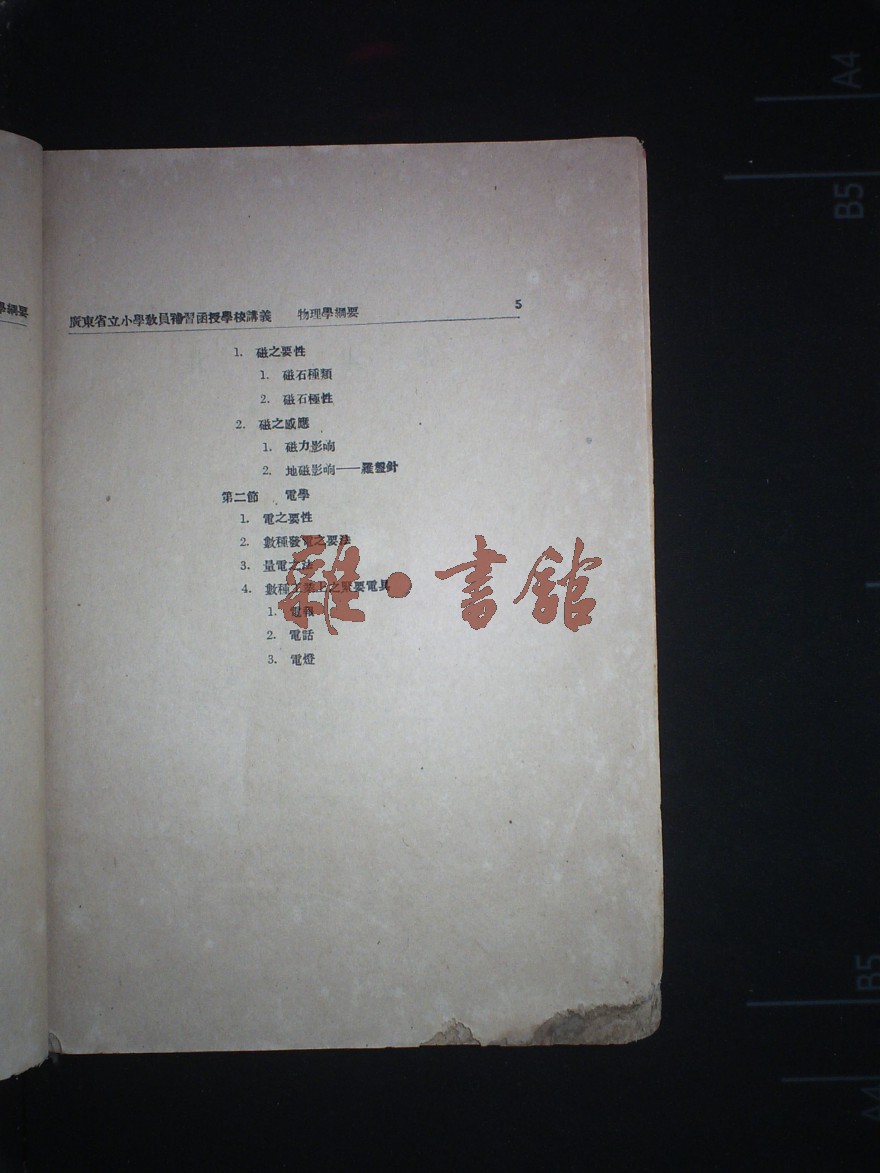 學綱要
廣東省立小學教員補習函授學校講義 物理學綱要 5
1. 磁之要性
1. 磁石種類
2. 磁石極性
2. 磁之感應
1. 磁力影响
2. 地磁影响——羅盤針
第二節 電學
1. 電之要性
2. 數種發電之要法
3. 量電之法
4. 數種工業上之緊要電具
1. 電報
2. 電話
3. 電燈
雜·書館
A4
B5
B5
A4